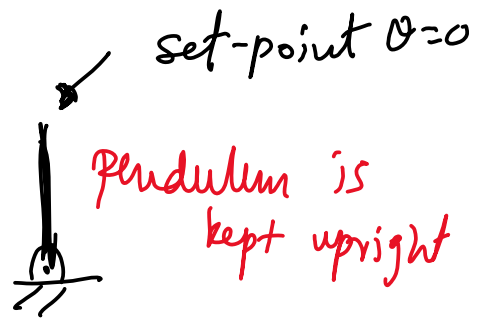 set-point θ=0
Pendulum is
kept upright